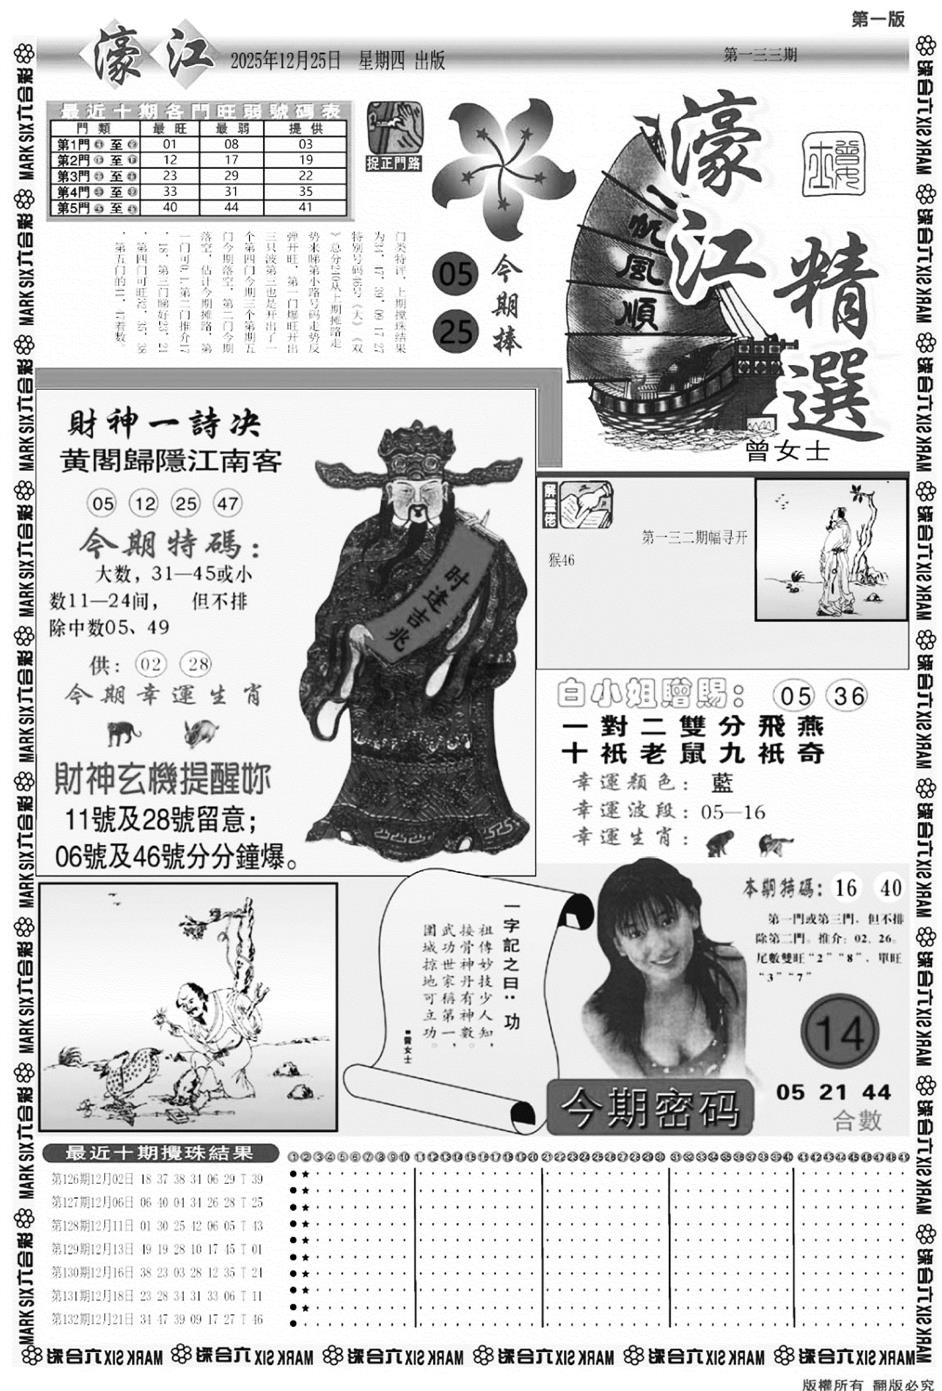 第一版
濠江
2025年12月25日 星期四 出版
第一三三期
最近十期各門旺弱號碼表
門類 最旺 最弱 提供
第1門 至 01 08 03
第2門 至 12 17 19
第3門 至 23 29 22
第4門 至 33 31 35
第5門 至 40 44 41
捉正門路
门类特评，上期搅珠结果
特别号码46号《大》《双
》总分210从上期摊路走
势来睇第小路号码走势反
弹开旺，第一门爆旺开出
三只波第三也是开出了一
个第四门今期三个第期五
门今期落空，第二门今期
落空，估计今期摊路，第
05
25
今期捧
一帆風順
濠江
精選
曾女士
財神一詩决
黄閣歸隱江南客
05 12 25 47
今期特碼：
大数，31—45或小
数11—24间， 但不排
除中数05、49
供：02 28
今期幸運生肖
財神玄機提醒妳
11號及28號留意；
06號及46號分分鐘爆。
时逢吉兆
解畫佬
第一三二期幅寻开
猴46
白小姐贈賜： 05 36
一對二雙分飛燕
十祇老鼠九祇奇
幸運顏色：藍
幸運波段：05—16
幸運生肖：
一字記之曰：功
祖傳妙技少人知，
接骨神丹有神數。
武功世家稱第一，
圍城掠地可立功。
■曾女士
本期特碼：16 40
第一門或第三門，但不排
除第二門。推介：02、26。
尾數雙旺“2”“8”，單旺
“3”“7”
14
今期密码
05 21 44
合數
最近十期攪珠結果
①②③④⑤⑥⑦⑧⑨⑩⑪⑫⑬⑭⑮⑯⑰⑱⑲⑳㉑㉒㉓㉔㉕㉖㉗㉘㉙㉚㉛㉜㉝㉞㉟㊱㊲㊳㊴㊵㊶㊷㊸㊹㊺㊻㊼㊽49
第126期12月02日 18 37 38 34 06 29 T 39
第127期12月06日 06 40 04 34 26 28 T 25
第128期12月11日 01 30 25 42 06 05 T 43
第129期12月13日 49 19 28 10 17 45 T 01
第130期12月16日 38 23 03 28 12 35 T 21
第131期12月18日 23 28 34 31 33 06 T 41
第132期12月21日 34 47 39 09 17 27 T 46
MARK SIX六合彩
版權所有 翻版必究